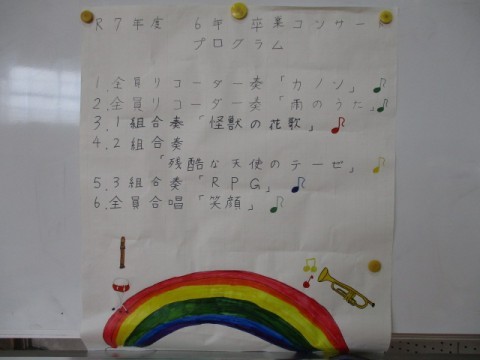 R7年度 6年 卒業コンサート
プログラム
1.全員リコーダー奏「カノン」
2.全員リコーダー奏「雨のうた」
3.1組合奏「怪獣の花歌」
4.2組合奏
「残酷な天使のテーゼ」
5.3組合奏「RPG」
6.全員合唱「笑顔」